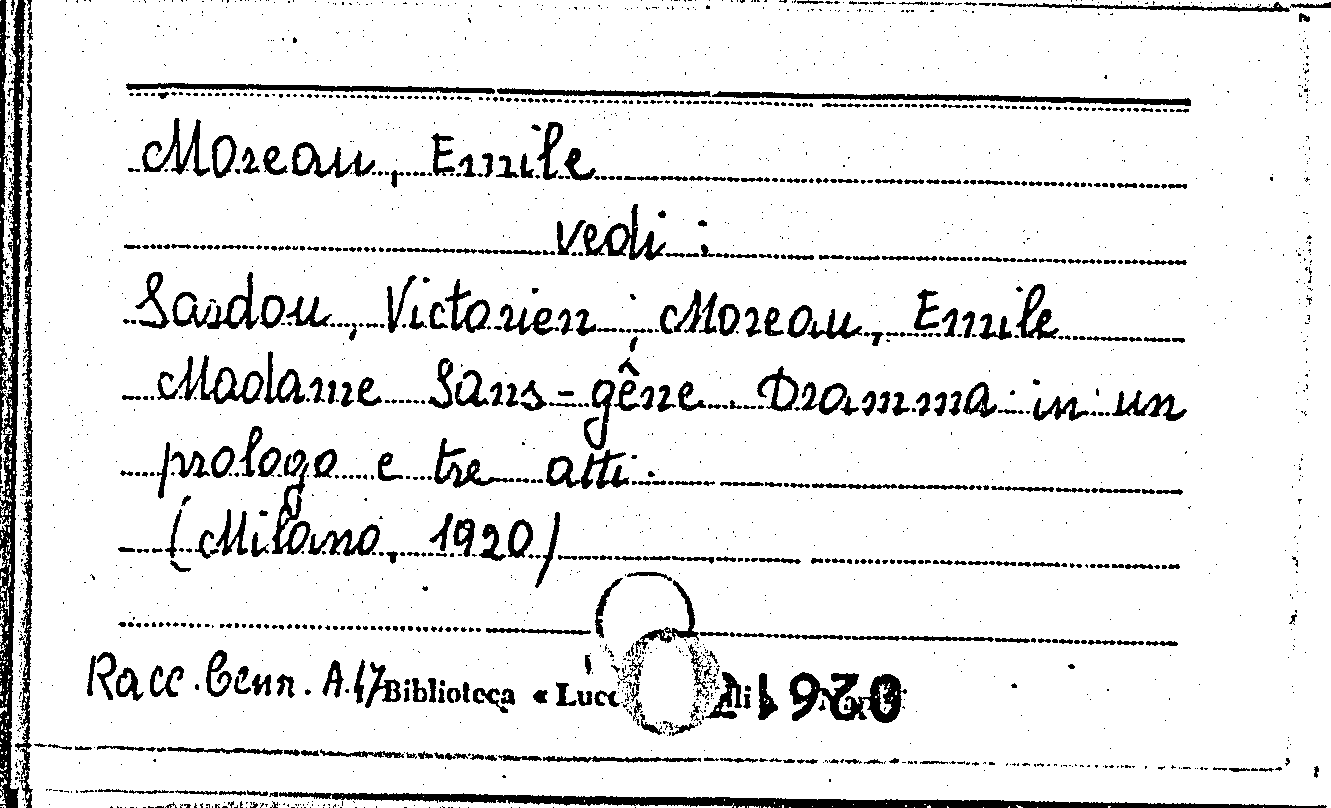 Moreau, Emile
vedi:
Sardou, Victorien; Moreau, Emile
Madame Sans-gêne. Dramma in un
prologo e tre atti.
(Milano, 1920)
Racc. Cenn. A.47 Biblioteca «